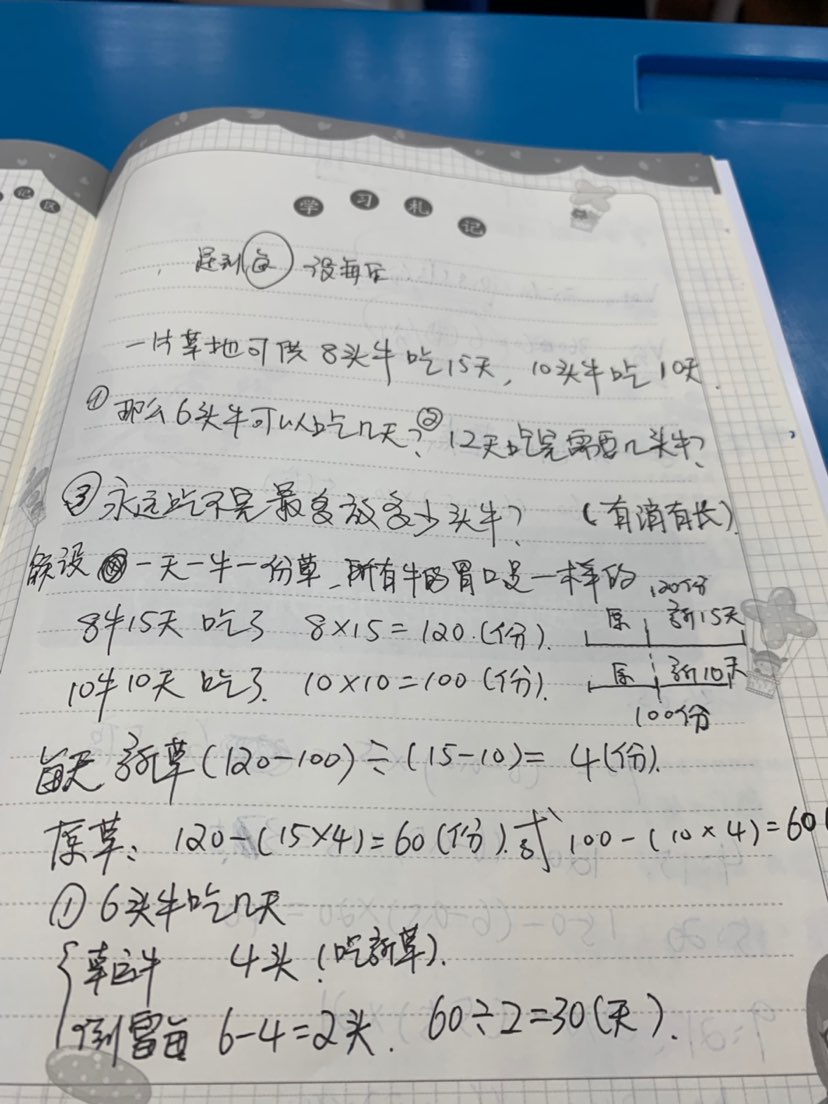 记区
学习札记
是到每 设每天
一片草地可供8头牛吃15天，10头牛吃10天.
①那么6头牛可以吃几天？②12天吃完需要几头牛？
③永远吃不完最多放多少头牛？（有消有长）.
假设一天一牛一份草，所有牛的胃口是一样的
120份
8牛15天 吃了 8×15=120.(份). 原 新15天
10牛10天 吃了. 10×10=100(份). 原 新10天
100份
每天 新草(120-100)÷(15-10)= 4(份).
原草: 120-(15×4)=60(份).或 100-(10×4)=60(
①6头牛吃几天
幸运牛 4头(吃新草).
倒霉 6-4=2头. 60÷2=30(天).